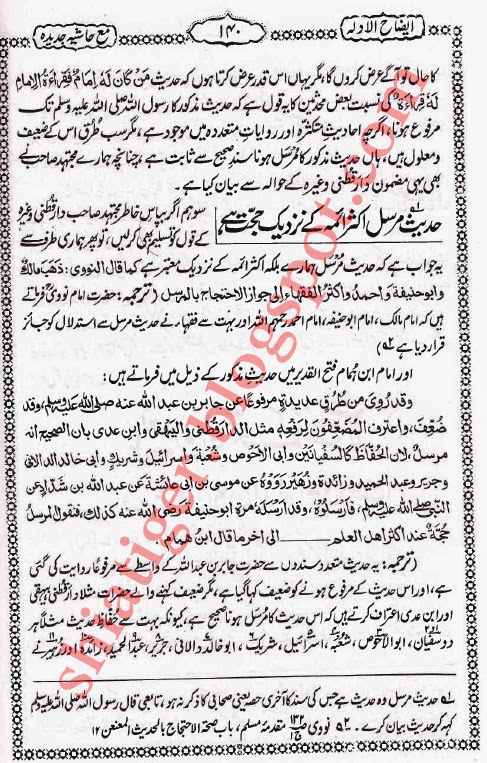 ایضاح الادلہ
۱۴۰
مع حاشیہ جدیدہ
کا حال تو آگے عرض کروں گا، مگر یہاں اس قدر عرض کرتا ہوں کہ حدیث مَنْ كَانَ لَهُ إِمَامٌ فَقِرَاءَةُ الْإِمَامِ
لَهُ قِرَاءَةٌ کی نسبت بعض محدثین کا یہ قول ہے کہ حدیث مذکور کا رسول اللہ صلی اللہ علیہ وسلم تک
مرفوع ہونا، اگرچہ احادیثِ متکثرہ اور روایات متعددہ میں موجود ہے، مگر سب طُرُق اس کے ضعیف
و معلول ہیں، ہاں حدیث مذکور کا مُرسَل ہونا سند صحیح سے ثابت ہے، چنانچہ ہمارے مجتہد صاحب نے
بھی یہی مضمون دارقطنی وغیرہ کے حوالہ سے بیان کیا ہے۔
حدیث مرسل اکثر ائمہ کے نزدیک حجت ہے
سو ہم اگر بپاسِ خاطر مجتہد صاحب دارقطنی وغیرہ
کے قول کو تسلیم بھی کر لیں، تو پھر ہماری طرف سے
یہ جواب ہے کہ حدیث مُرسَل ہمارے بلکہ اکثر ائمہ کے نزدیک معتبر ہے کما قال النووی: ذَهَبَ مالك
وابوحنيفة واحمدُ واكثرُ الفقهاءِ الى جواز الاحتجاج بالمرسل (ترجمہ: حضرت امام نووی فرماتے
ہیں کہ امام مالک، امام ابوحنیفہ، امام احمد رحمہم اللہ اور بہت سے فقہاء نے حدیث مرسل سے استدلال کو جائز
قرار دیا ہے ۲؎)
اور امام ابن ہمام فتح القدیر میں حدیث مذکور کے ذیل میں فرماتے ہیں:
وقد رُوِیَ من طُرُقٍ عديدةٍ مرفوعًا عن جابر بن عبد الله عنه صلى الله عليه وسلم، وقد
ضُعِّفَ، واعترف المُضَعِّفون لرفعه مثل الدارقطني والبيهقي وابن عدي بان الصحيح انه
مرسل، لان الحُفَّاظَ كالسفيانَين وابى الاحوص وشعبةَ واسرائيلَ وشريكٍ وابى خالد الدالانى
وجرير وعبد الحميد وزائدة وزهيرٍ رَوَوْهُ عن موسى بن ابى عائشة عن عبد الله بن شداد عن
النبي صلى الله عليه وسلم، فأرسلوه، وقد ارسله مرةً ابوحنيفة رضى الله عنه كذلك، فنقول المرسلُ
حجةٌ عند اكثر اهل العلم ــــــ الى آخر ما قال ابن همام۔
(ترجمہ: یہ حدیث متعدد سندوں سے حضرت جابر بن عبد اللہ کے واسطے سے مرفوعاً روایت کی گئی
ہے، اور اس حدیث کے مرفوع ہونے کو ضعیف کہا گیا ہے، مگر ضعیف کہنے والے حضرات مثلاً دارقطنی بیہقی
اور ابن عدی اعتراف کرتے ہیں کہ اس حدیث کا مُرسَل ہونا صحیح ہے، کیونکہ بہت سے حفاظِ حدیث مثلاً ہر
دو سفیان، ابوالاحوص، شعبہ، اسرائیل، شریک، ابوخالد دالانی، جریر، عبد الحمید، زائدہ اور زہیر نے
۱؎ حدیث مرسل وہ حدیث ہے جس کی سند کا آخری حصہ یعنی صحابی کا ذکر نہ ہو، تابعی قال رسول اللہ صلی اللہ علیہ وسلم
کہہ کر حدیث بیان کرے۔ ۲؎ نووی ص۱۳۲ ج۱ مقدمہ مسلم، باب صحۃ الاحتجاج بالحدیث المعنعن ۱۲
shiatiger.blogspot.com